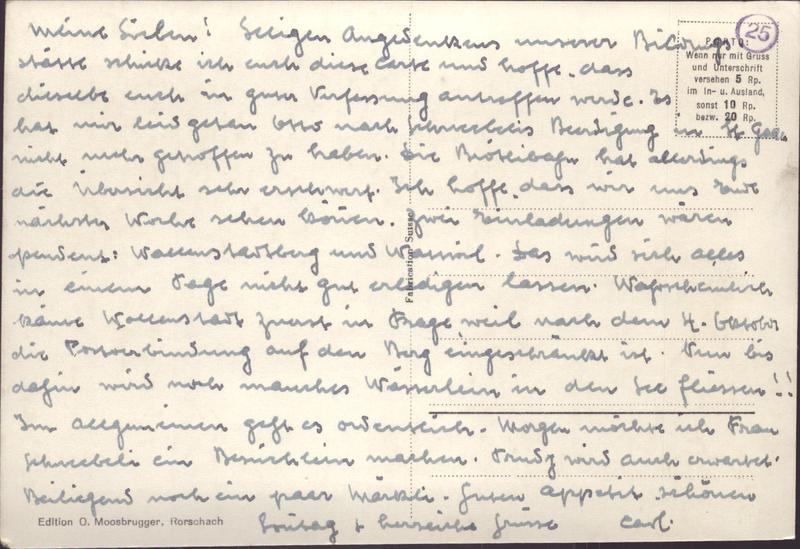 Meine Lieben! Seligen Angedenkens unserer Bildungs
stätte schicke ich euch diese Carte und hoffe, dass
dieselbe euch in guter Verfassung antreffen werde. Es
hat mir leid getan Otto nach Schneebelis Beerdigung in St. Gallen
nicht mehr getroffen zu haben. Die Rösslibahn hat allerdings
die Übersicht sehr erschwert. Ich hoffe, dass wir uns Ende
nächster Woche sehen können. Zwei Einladungen wären
pendent: Wallenstadtberg und Das wird sich alles
in einem Tage nicht gut erledigen lassen. Wahrscheinlich
käme Wallenstadt zuerst in Frage weil nach dem 4. Oktober
die Postverbindung auf den Berg eingeschränkt ist. Nun bis
dahin wird noch manches Wässerlein in den See fliessen!!
Im allgemeinen geht es ordentlich. Morgen möchte ich Frau
Schneebeli ein Besüchlein machen. Trudy wird auch erwartet.
Beiligend noch ein paar Märkli. Guten Appetit schönen
Sonntag & herzliche Grüsse Carl.
25
PORTO:
Wenn nur mit Gruss
und Unterschrift
versehen 5 Rp.
im In- u. Ausland,
sonst 10 Rp.
bezw. 20 Rp.
Fabrication Suisse
Edition O. Moosbrugger, Rorschach